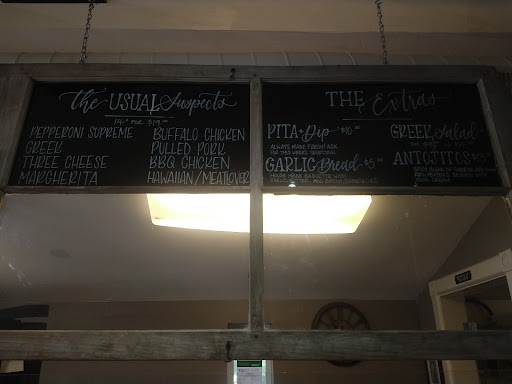 the USUAL Suspects
14" PIZZA $19.00
PEPPERONI SUPREME
GREEK
THREE CHEESE
MARGHERITA
BUFFALO CHICKEN
PULLED PORK
BBQ CHICKEN
HAWAIIAN/MEATLOVER
THE Extras
PITA & Dip $10.00
ALWAYS MADE FRESH! ASK
FOR THIS WEEKS SELECTION
GARLIC Bread $5.00
GREEK Salad
ANTOJITOS